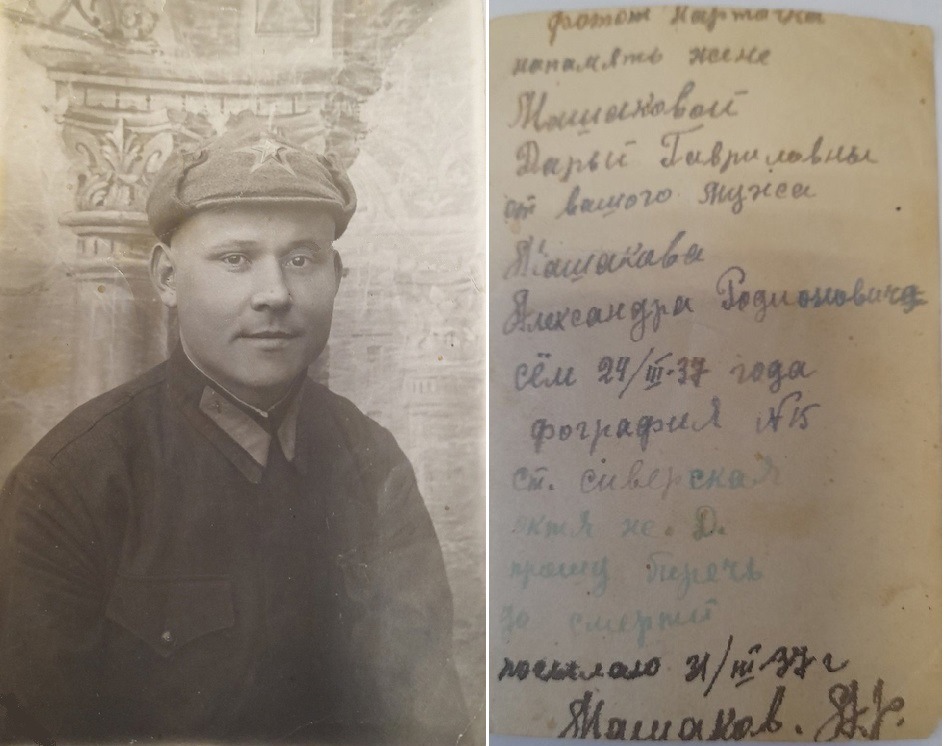 фотож карточка
напамять жене
Машаковой
Дарьй Гавриловны
от вашого мужа
Машакова
Александра Родионовича
сём 24/III-37 года
фография N15
ст. сиверская
октя же. Д.
прошу биречь
до смертй
посылаю 31/III-37 г
Машаков.